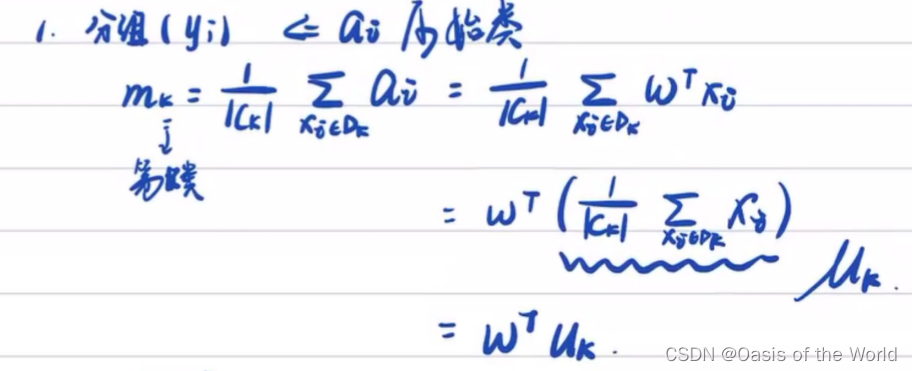 1. 分组(yi) ⇐ ai 原始类
mk = 1/|Ck| Σ xi∈Dk ai = 1/|Ck| Σ xi∈Dk ωᵀxi
↓
第k类
= ωᵀ (1/|Ck| Σ xi∈Dk xi)
μk.
= ωᵀ uk.
CSDN @Oasis of the World